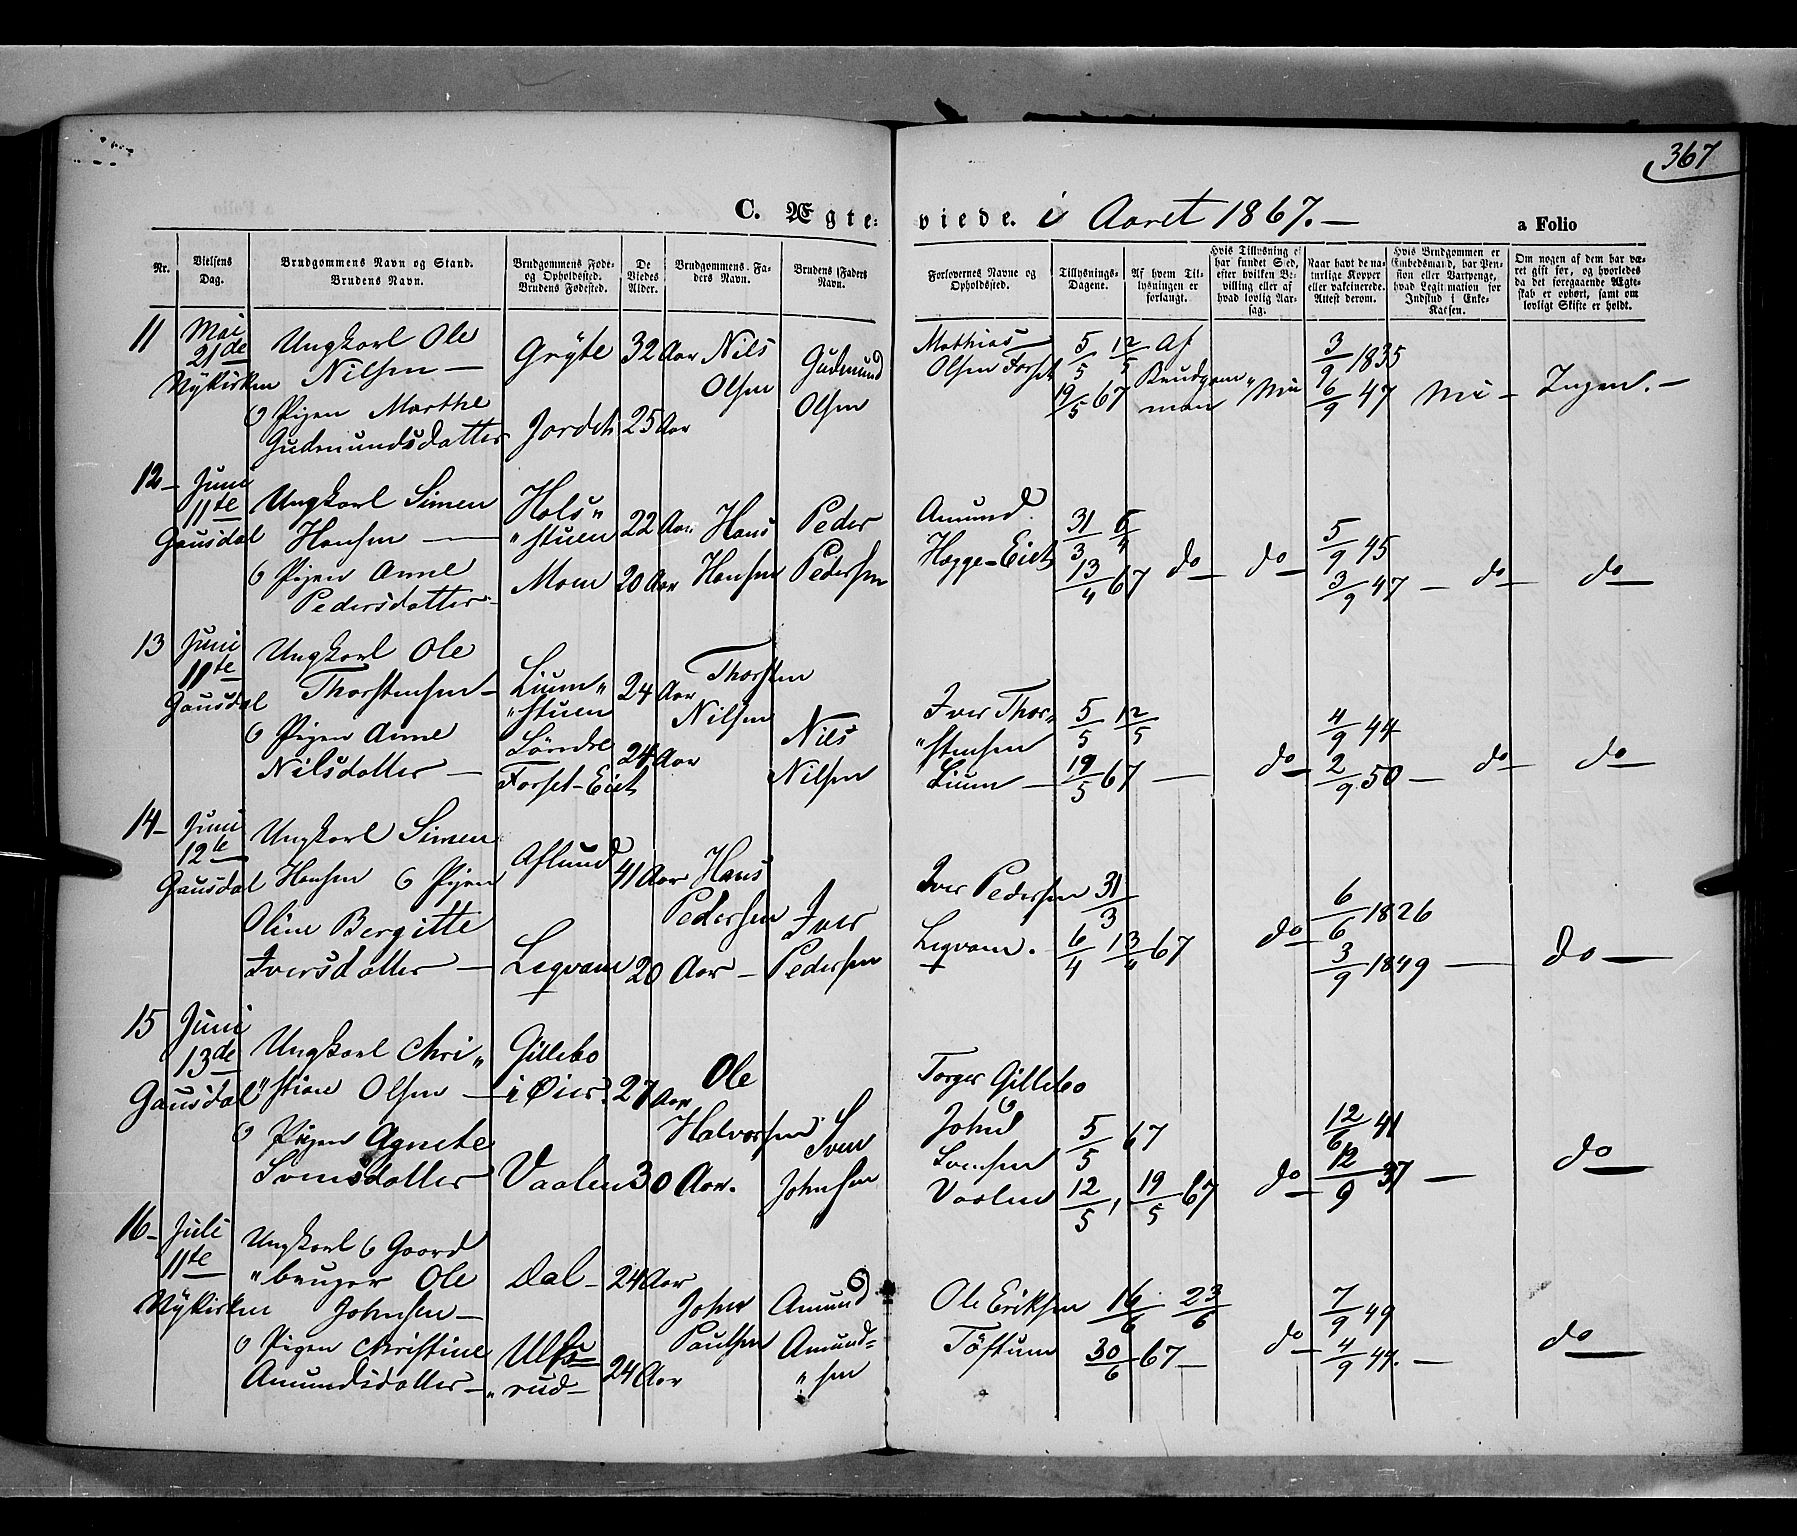 367
C. Ægte= viede. i Aaret 1867. —
a Folio
Nr.
Vielsens Dag.
Brudgommens Navn og Stand. Brudens Navn.
Brudgommens Føde- og Opholdssted. Brudens Fødested.
De Viedes Alder.
Brudgommens Faders Navn.
Brudens Faders Navn.
Forlovernes Navne og Opholdssted.
Tillysnings-Dagene.
Af hvem Tillysningen er forlangt.
Hvis Tillysning ei har fundet Sted, efter hvilken Bevilling eller af hvad lovlig Aarsag.
Naar havt de naturlige Kopper eller vakcinerede. Attest derom.
Hvis Brudgommen er Embedsmand, har Pension eller Vartpenge, hvad Legitimation for Indskud i Enkekassen.
Om nogen af dem har været gift før, og hvorledes da det foregaaende Ægteskab er ophørt, samt om lovligt Skifte er holdt.
11 Mai 21de Nykirken
Ungkarl Ole Nilsen — Gryte 32 Aar Nils Olsen
& Pigen Marthe Gudmundsdatter Jordet 25 Aar Gudmund Olsen
Mathias Olsen Forset 5/5 12/5 19/5 67 Af Brudgommen Nei 3/9 1835 6/9 47 Nei — Ingen. —
12 — Juni 11te Gausdal
Ungkarl Simen Hansen — Hols" "stuen 22 Aar Hans Hansen
& Pigen Anne Pedersdatter — Moen 20 Aar Peder Pedersen
Amund Hegge-Eiet 31/3 6/4 13/4 67 do — do — 5/9 45 3/9 47 — do — do —
13 Juni 11te Gausdal
Ungkarl Ole Thorstensen — Lium" "stuen 24 Aar Thorsten Nilsen
& Pigen Anne Nilsdatter — Søndre Forset-Eiet 24 Aar Nils Nilsen
Iver Thor" "stensen Lium — 5/5 12/5 19/5 67 — do — 4/9 44 2/9 50 — do — do —
14 — Juni 12te Gausdal
Ungkarl Simen Hansen & Pigen Aflund 41 Aar Hans Pedersen
Oline Bergitte Iversdatter — Legvam 20 Aar — Iver Pedersen
Iver Pedersen Legvam. 31/3 6/4 13/4 67 do — 6/6 1826 3/9 1849 — do —
15 Juni 13de Gausdal
Ungkarl Chri" "stian Olsen — Gillebo i Øier. 27 Aar Ole Halvorsen
& Pigen Agnete Svensdatter Vaalen 30 Aar. Sven Johnsen
Torger Gillebo & John Svensen Vaalen 5/5 67 12/5, 19/5 67 do — 12/6 41 12/9 37 — do —
16 — Juli 11te Nykirken
Ungkarl & Gaard "bruger Ole Johnsen — Dal — 24 Aar John Paulsen
& Pigen Christine Amundsdatter — "rud — 24 Aar Amund Amund= "sen
Ole Eriksen Töftum 16/6 23/6 30/6 67 — do — 7/9 49 4/9 44. — do —